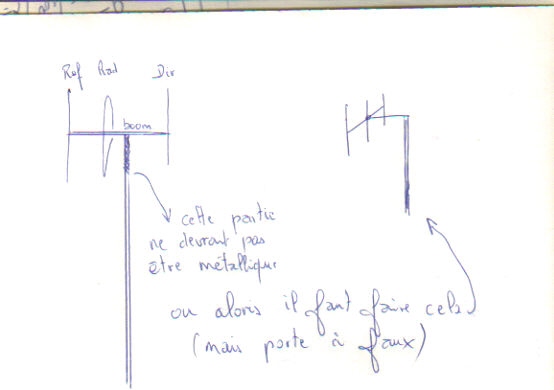 Ref Rad Dir
boom
cette partie
ne devrait pas
être métallique
ou alors il faut faire cela
(mais porte à faux)